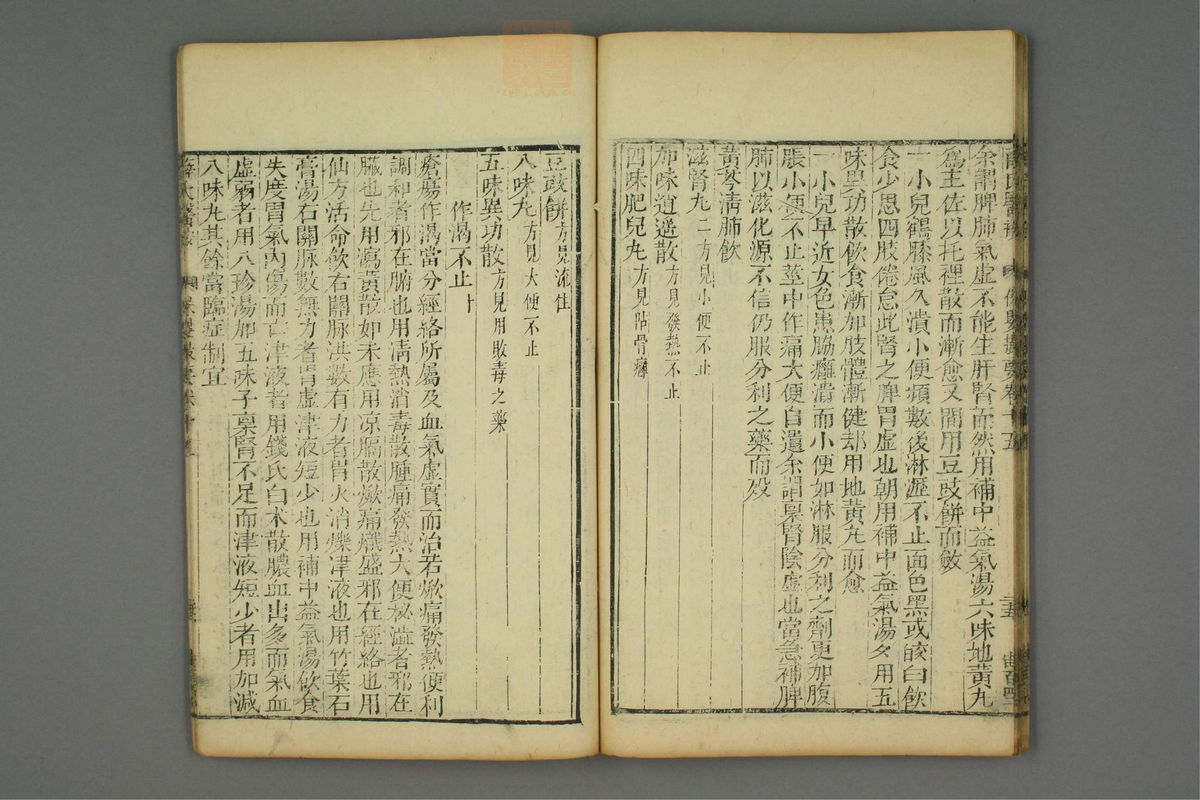 余謂脾肺氣虛不能生肝腎而然用補中益氣湯六味地黃丸
爲主佐以托裡散而漸愈又間用豆豉餅而斂
一小兒鶴膝風久潰小便頻數後淋瀝不止面色黑或皎白飲
食少思四肢倦怠此腎之脾胃虛也朝用補中益氣湯夕用五
味異功散飲食漸加肢體漸健却用地黃丸而愈
一小兒早近女色患脇癰潰而小便如淋服分利之劑更加腹
脹小便不止莖中作痛大便自遺余謂稟腎陰虛也當急補脾
肺以滋化源不信仍服分利之藥而歿
黃芩淸肺飮
滋腎丸二方見小便不止
加味逍遥散方見發熱不止
四味肥兒丸方見貼骨癰
豆豉餅方見流注
八味丸方見大便不止
五味異功散方見用敗毒之藥
作渴不止十
瘡瘍作渴當分經絡所屬及血氣虛實而治若焮痛發熱便利
調和者邪在腑也用淸熱消毒散腫痛發熱大便秘澁者邪在
臟也先用瀉黃散如未應用凉膈散焮痛熾盛邪在經絡也用
仙方活命飮右關脉洪數有力者胃火消爍津液也用竹葉石
膏湯石關脉數無力者胃虛津液短少也用補中益氣湯飲食
失度胃氣內傷而亡津液者用錢氏白术散膿血出多而氣血
虛弱者用八珍湯加五味子稟腎不足而津液短少者用加減
八味丸其餘當臨症制宜